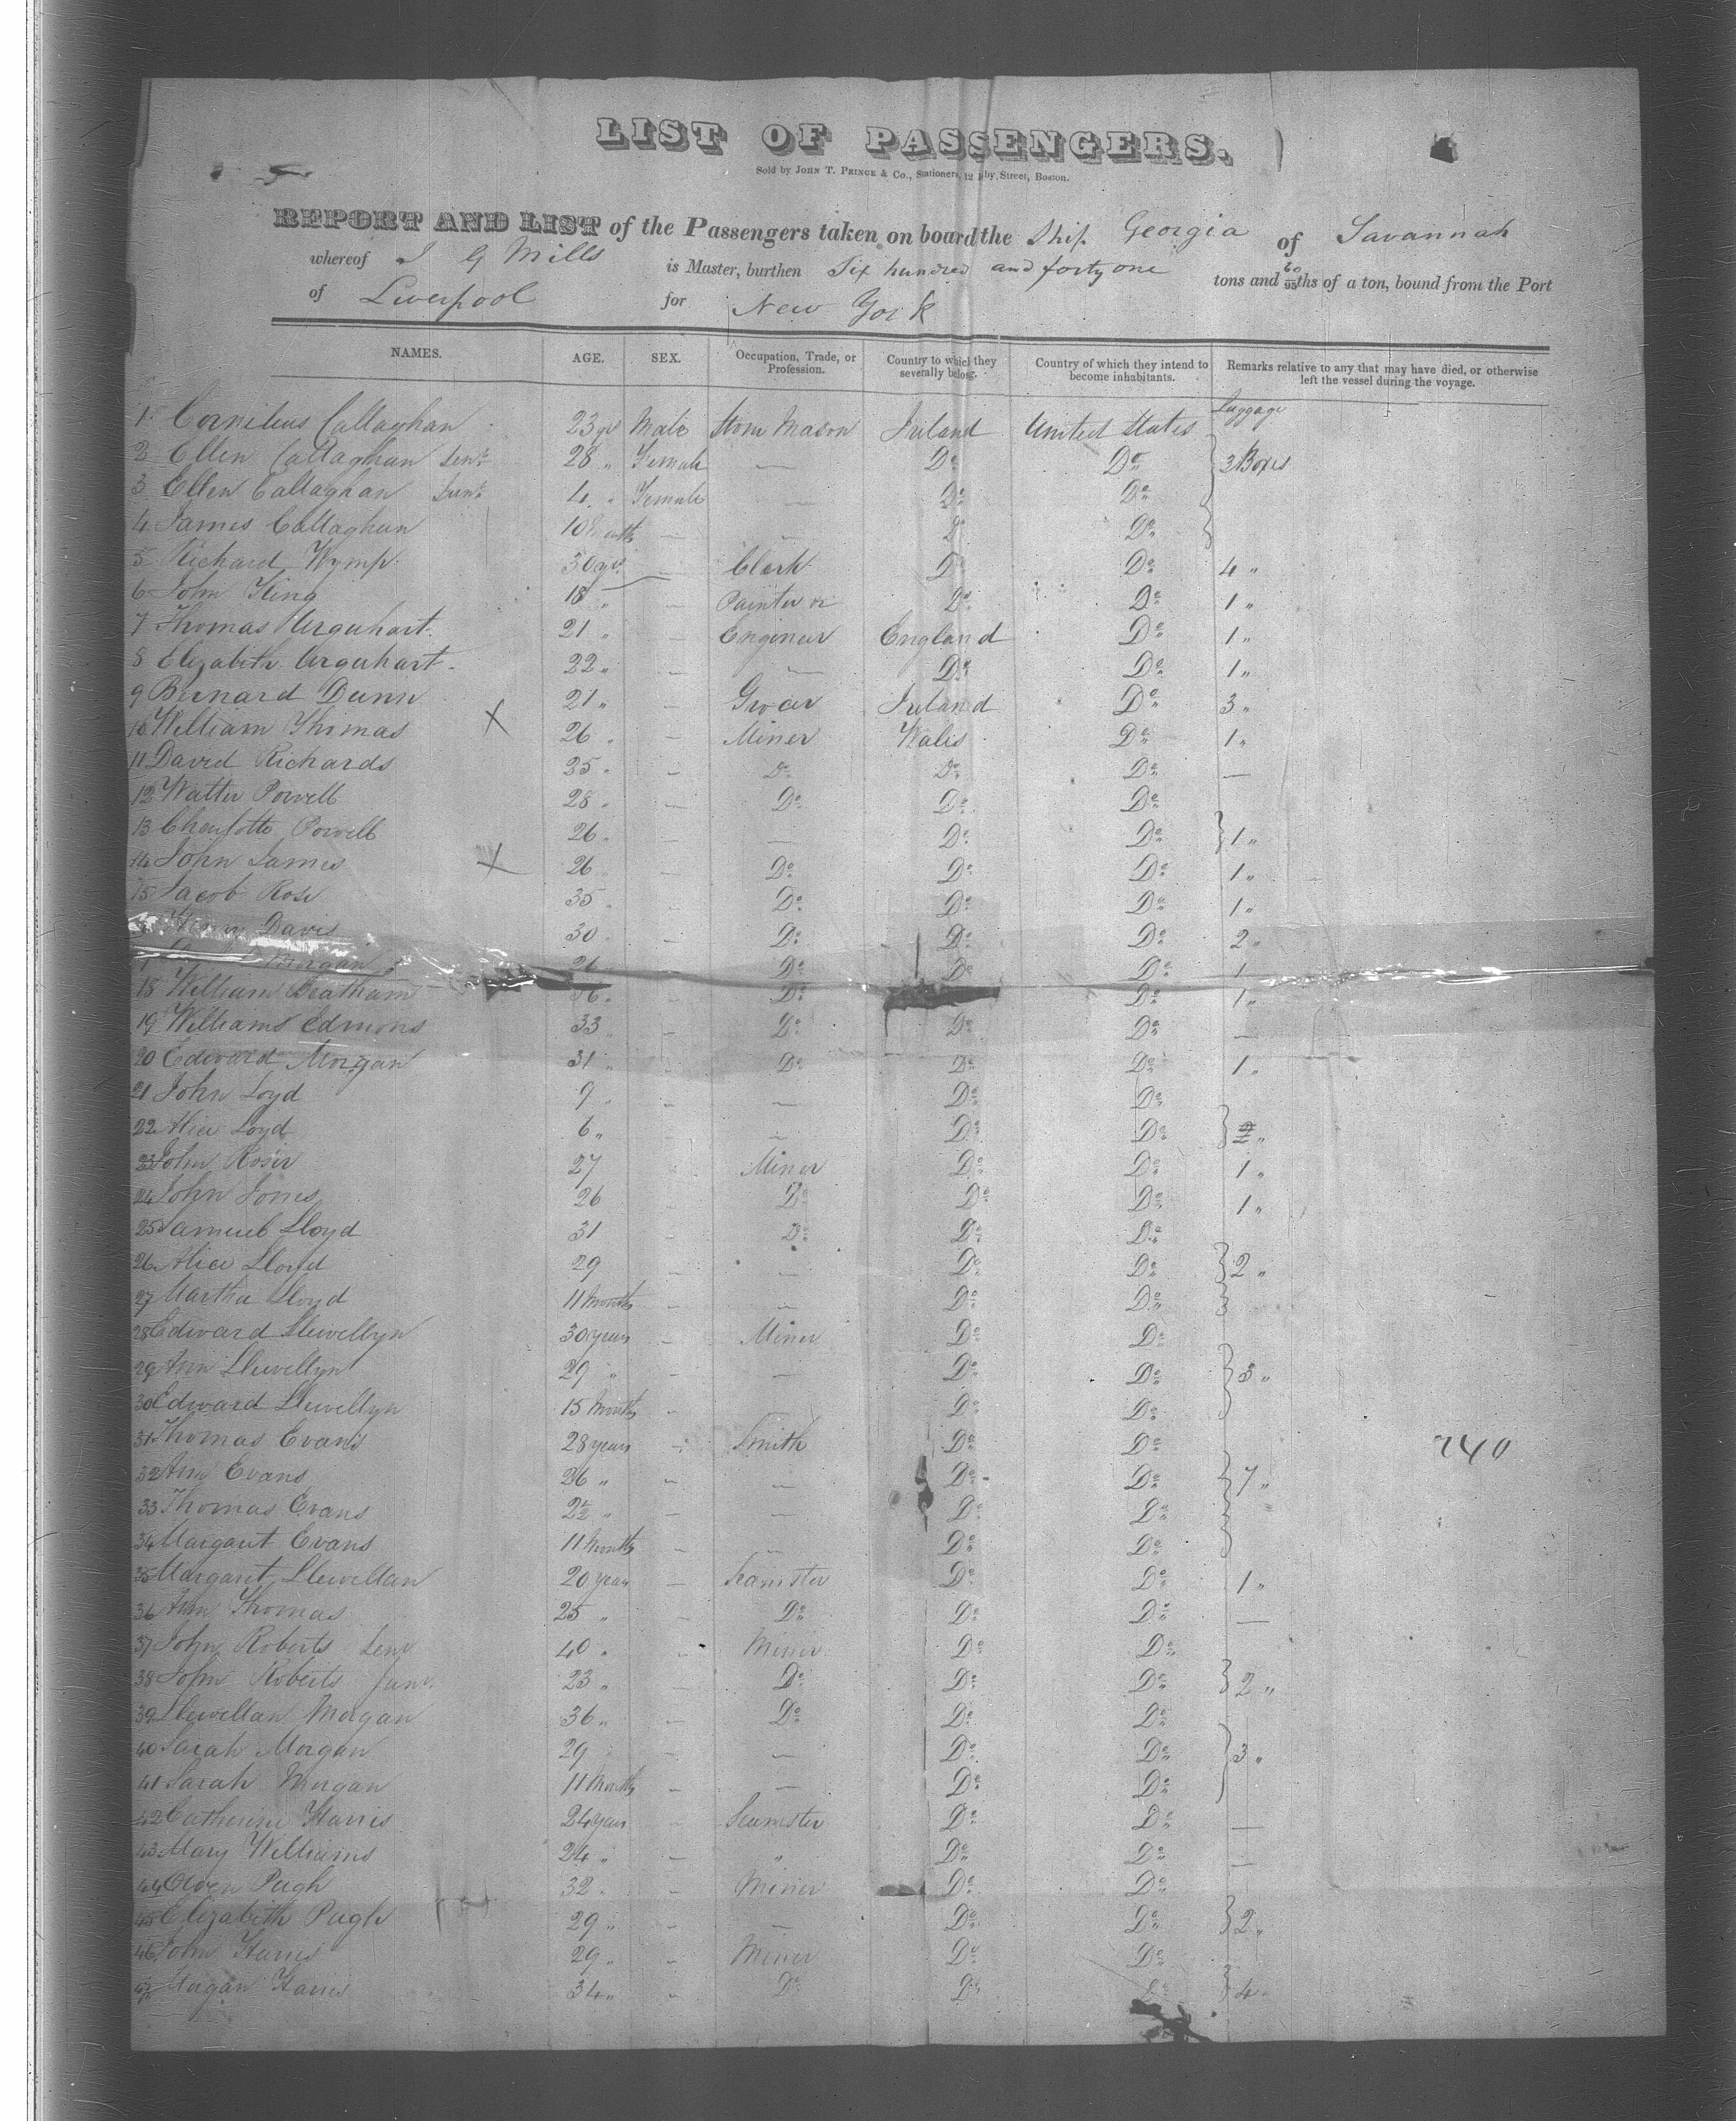 LIST OF PASSENGERS.
Sold by John T. Prince & Co., Stationers, 12 by Street, Boston.
REPORT AND LIST of the Passengers taken on board the Ship Georgia of Savannah
whereof J G Mills is Master, burthen Six hundred and forty one tons and 60/95ths of a ton, bound from the Port
of Liverpool for New York
NAMES. AGE. SEX. Occupation, Trade, or Profession. Country to which they severally belong. Country of which they intend to become inhabitants. Remarks relative to any that may have died, or otherwise left the vessel during the voyage.
Luggage
1 Cornelius Callaghan 23 yrs Male Stone Mason Ireland United States
2 Ellen Callaghan Senr 28 " Female — Do Do 3 Boxes
3 Ellen Callaghan Junr 4 " Female — Do Do
4 James Callaghan 10 Months — — Do Do
5 Richard Wymp 30 yrs — Clerk Do Do 4 "
6 John King 18 " — Painter Do Do 1 "
7 Thomas Urquhart 21 " — Engineer England Do 1 "
8 Elizabeth Urquhart 22 " — — Do Do 1 "
9 Bernard Dunn 21 " — Grocer Ireland Do 3 "
10 William Thomas X 26 " — Miner Wales Do 1 "
11 David Richards 25 " — Do Do Do —
12 Walter Powell 28 " — Do Do Do
13 Charlotte Powell 26 " — — Do Do 1 "
14 John James X 26 — Do Do Do 1 "
15 Jacob Rose 35 " — Do Do Do 1 "
Henry Davis 30 " — Do Do Do 2 "
Morgan 26 — Do Do Do 1
18 William 36 " Do Do 1 "
19 Williams Edmons 33 — Do Do Do —
20 Edward Morgan 31 " — Do Do Do 1 "
21 John Loyd 9 " — — Do Do
22 Alice Loyd 6 " — Do Do 2 "
23 John Rosir 27 Miner Do Do 1 "
24 John Jones 26 — Do Do Do 1 "
25 Samuel Lloyd 31 — Do Do Do
26 Alice Lloyd 29 — — Do Do 2 "
27 Martha Lloyd 11 Months — — Do Do
28 Edward Llewellyn 30 years — Miner Do Do
29 Ann Llewellyn 29 " — — Do Do 3 "
30 Edward Llewellyn 15 Months — Do Do
31 Thomas Evans 28 years — Smith Do Do
240
32 Ann Evans 26 " — — Do Do 7 "
33 Thomas Evans 2½ " — — Do Do
34 Margaret Evans 11 Months — — Do Do
35 Margaret Llewellan 20 years — Seamster Do Do 1 "
36 Ann Thomas 25 " — Do Do Do —
37 John Roberts Senr 40 " — Miner Do Do
38 John Roberts Junr 23 " — Do Do Do 2 "
39 Llewellan Morgan 36 " — Do Do Do
40 Sarah Morgan 29 " — — Do Do 3 "
41 Sarah Morgan 11 Months — — Do Do
42 Catherine Harris 24 years — Seamster Do Do —
43 Mary Williams 24 " — " Do Do —
44 Owen Pugh 32 " — Miner Do Do
45 Elizabeth Pugh 29 " — — Do Do 2 "
46 John Harris 29 " — Miner Do Do
47 Morgan Harris 34 " — Do Do Do 4 "